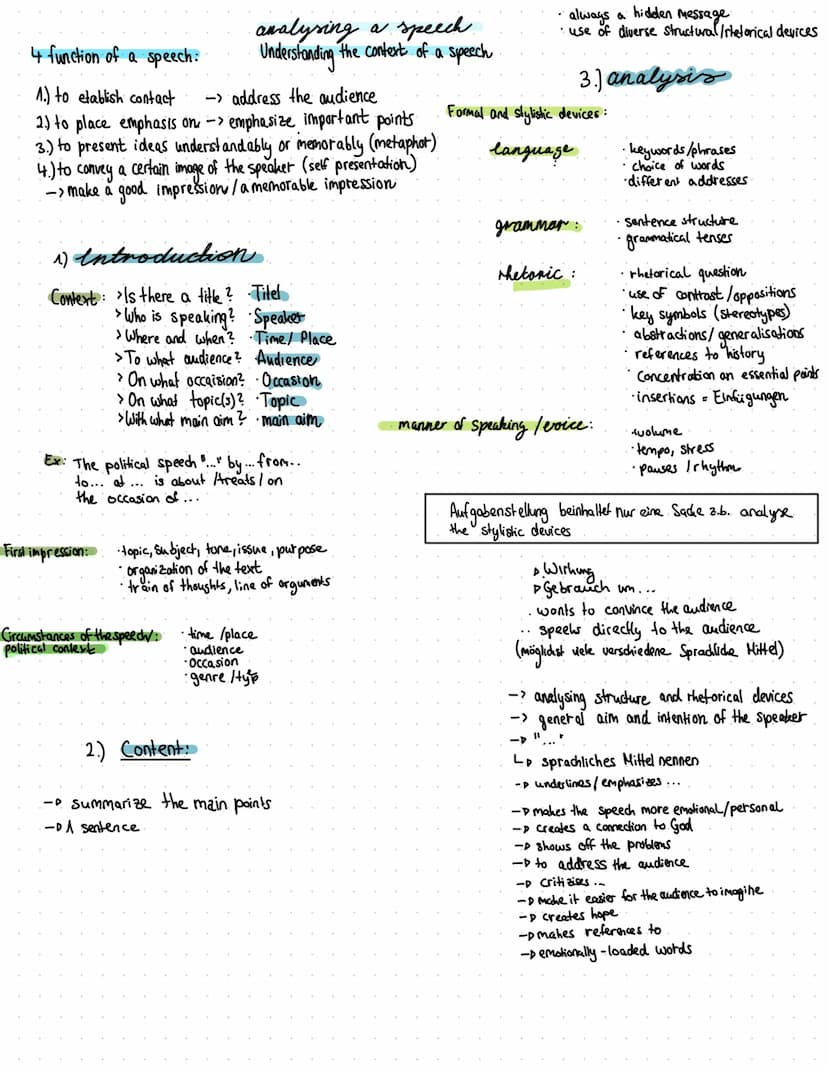 analysing a speech
Understanding the context of a speech
4 function of a speech:
1.) to etablish contact -> address the audience
2) to place emphasis on -> emphasize important points
3.) to present ideas understandably or memorably (metaphor)
4.) to convey a certain image of the speaker (self presentation)
-> make a good impression / a memorable impression
1) Introduction
Context: >Is there a title? · Titel
>Who is speaking? · Speaker
>Where and when? · Time/ Place
>To what audience? · Audience
> On what occaision? · Occasion
> On what topic(s)? · Topic
>With what main aim? · main aim
Ex: The political speech "..." by ... from..
to... at ... is about /treats / on
the occasion of ...
First impression: · topic, subject, tone, issue, purpose
· organization of the text
· train of thoughts, line of arguments
Circumstances of the speech/:
political context
· time /place
· audience
· occasion
· genre /typ
2.) Content:
-> summarize the main points
-> 1 sentence
· always a hidden message
· use of diverse structural/rhetorical devices
3.) analysis
Formal and stylistic devices:
language · keywords/phrases
· choice of words
· different addresses
grammar: · sentence structure
· grammatical tenses
rhetoric: · rhetorical question
· use of contrast /oppositions
· key symbols (stereotypes)
· abstractions/ generalisations
· references to history
· concentration on essential points
· insertions = Einfügungen
· manner of speaking /voice:
· volume
· tempo, stress
· pauses /rhythm
Aufgabenstellung beinhaltet nur eine Sache z.b. analyse
the stylistic devices
▷ Wirkung
▷ Gebrauch um...
. wants to convince the audience
.. speeks directly to the audience
(möglichst viele verschiedene Sprachliche Mittel)
-> analysing structure and rhetorical devices
-> general aim and intention of the speaker
-> "..."
↳ sprachliches Mittel nennen
-> underlines/ emphasizes ...
-> makes the speech more emotional/personal
-> creates a connection to God
-> shows off the problems
-> to address the audience
-> critizises ...
-> make it easier for the audience to imagine
-> creates hope
-> makes references to
-> emotionally-loaded words